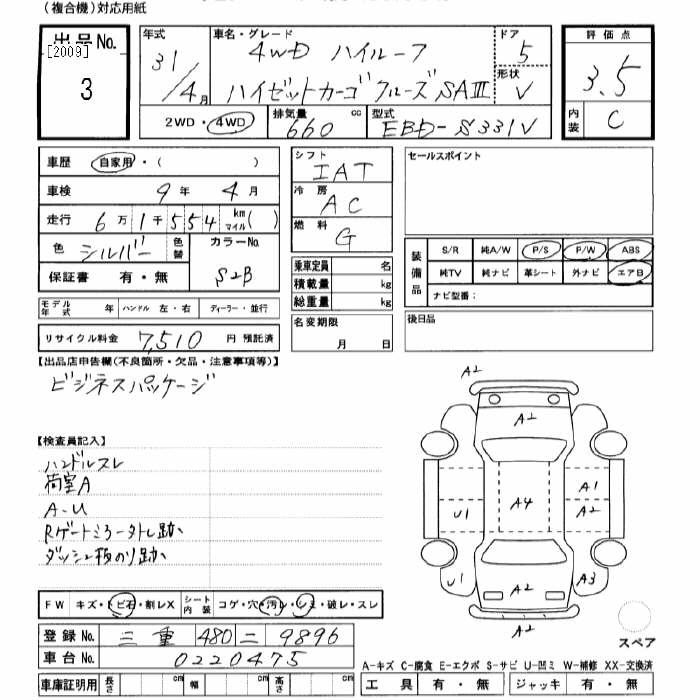 (複合機)対応用紙
出品No. [2009] 3
年式 31/4月
車名・グレード 4WD ハイルーフ
ハイゼットカーゴ クルーズSAⅢ
ドア 5
形状 V
評価点 3.5
内装 C
2WD・4WD 排気量 660 cc 型式 EBD-S331V
車歴 自家用・( )
車検 9年 4月
走行 6万1千554 km マイル( )
色 シルバー 色替 カラーNo. S28
保証書 有・無
シフト IAT
冷房 AC
燃料 G
セールスポイント
乗車定員 名
積載量 kg
総重量 kg
装備品 S/R 純A/W P/S P/W ABS
純TV 純ナビ 革シート 外ナビ エアB
ナビ型番:
モデル年式 年 ハンドル 左・右 ディーラー・並行
名変期限 月 日
後日品
リサイクル料金 7,510 円 預託済
【出品店申告欄(不良箇所・欠品・注意事項等)】
ビジネスパッケージ
【検査員記入】
ハンドルスレ
荷室A
A-U
Rゲートミラー外し跡
ダッシュ板のり跡
A2
A2
A1
U1 A4 A2
U1 A2 A3
A2
スペア
FW キズ・トビ石・割レX シート内装 コゲ・穴・汚レ・シミ・破レ・スレ
登録No. 三重 480 ニ 9896
車台No. 0220475
A-キズ C-腐食 E-エクボ S-サビ U-凹ミ W-補修 XX-交換済
車庫証明用 長さ cm 幅 cm 高さ cm 工具 有・無 ジャッキ 有・無